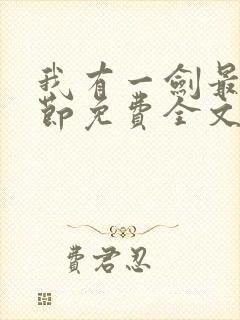 我有一劍最
節免費全文
費君忍